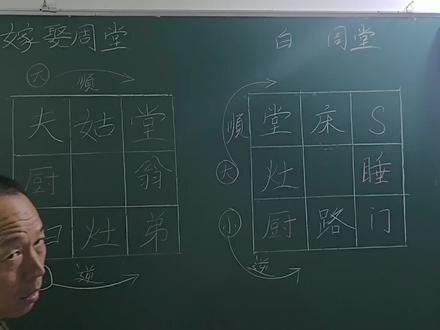 嫁娶周堂
大 順
夫 姑 堂
厨 翁
灶 弟
逆
白 周堂
順
堂 床 S
大
灶 睡
小
厨 路 门
逆